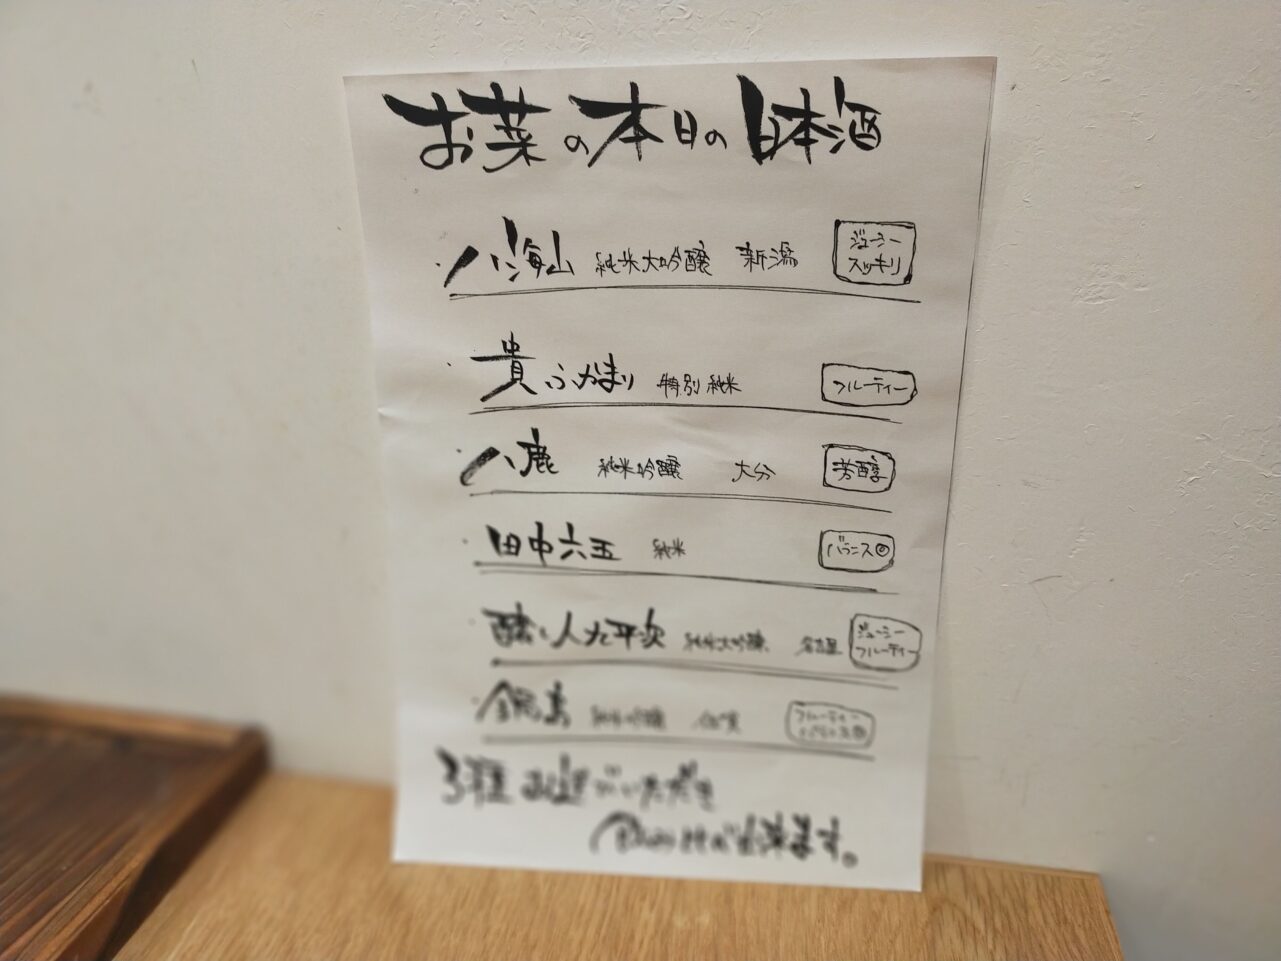 お菜の本日の日本酒
八海山 純米大吟醸 新潟 ジューシー スッキリ
貴 ふかまり 特別純米 フルーティー
八鹿 純米吟醸 大分 芳醇
田中六五 純米 バランス◎
醸し人九平次 純米大吟醸 名古屋 ジューシー フルーティー
鍋島 純米吟醸 佐賀 フルーティー バランス◎
3種 お選びいただき
出来ます。